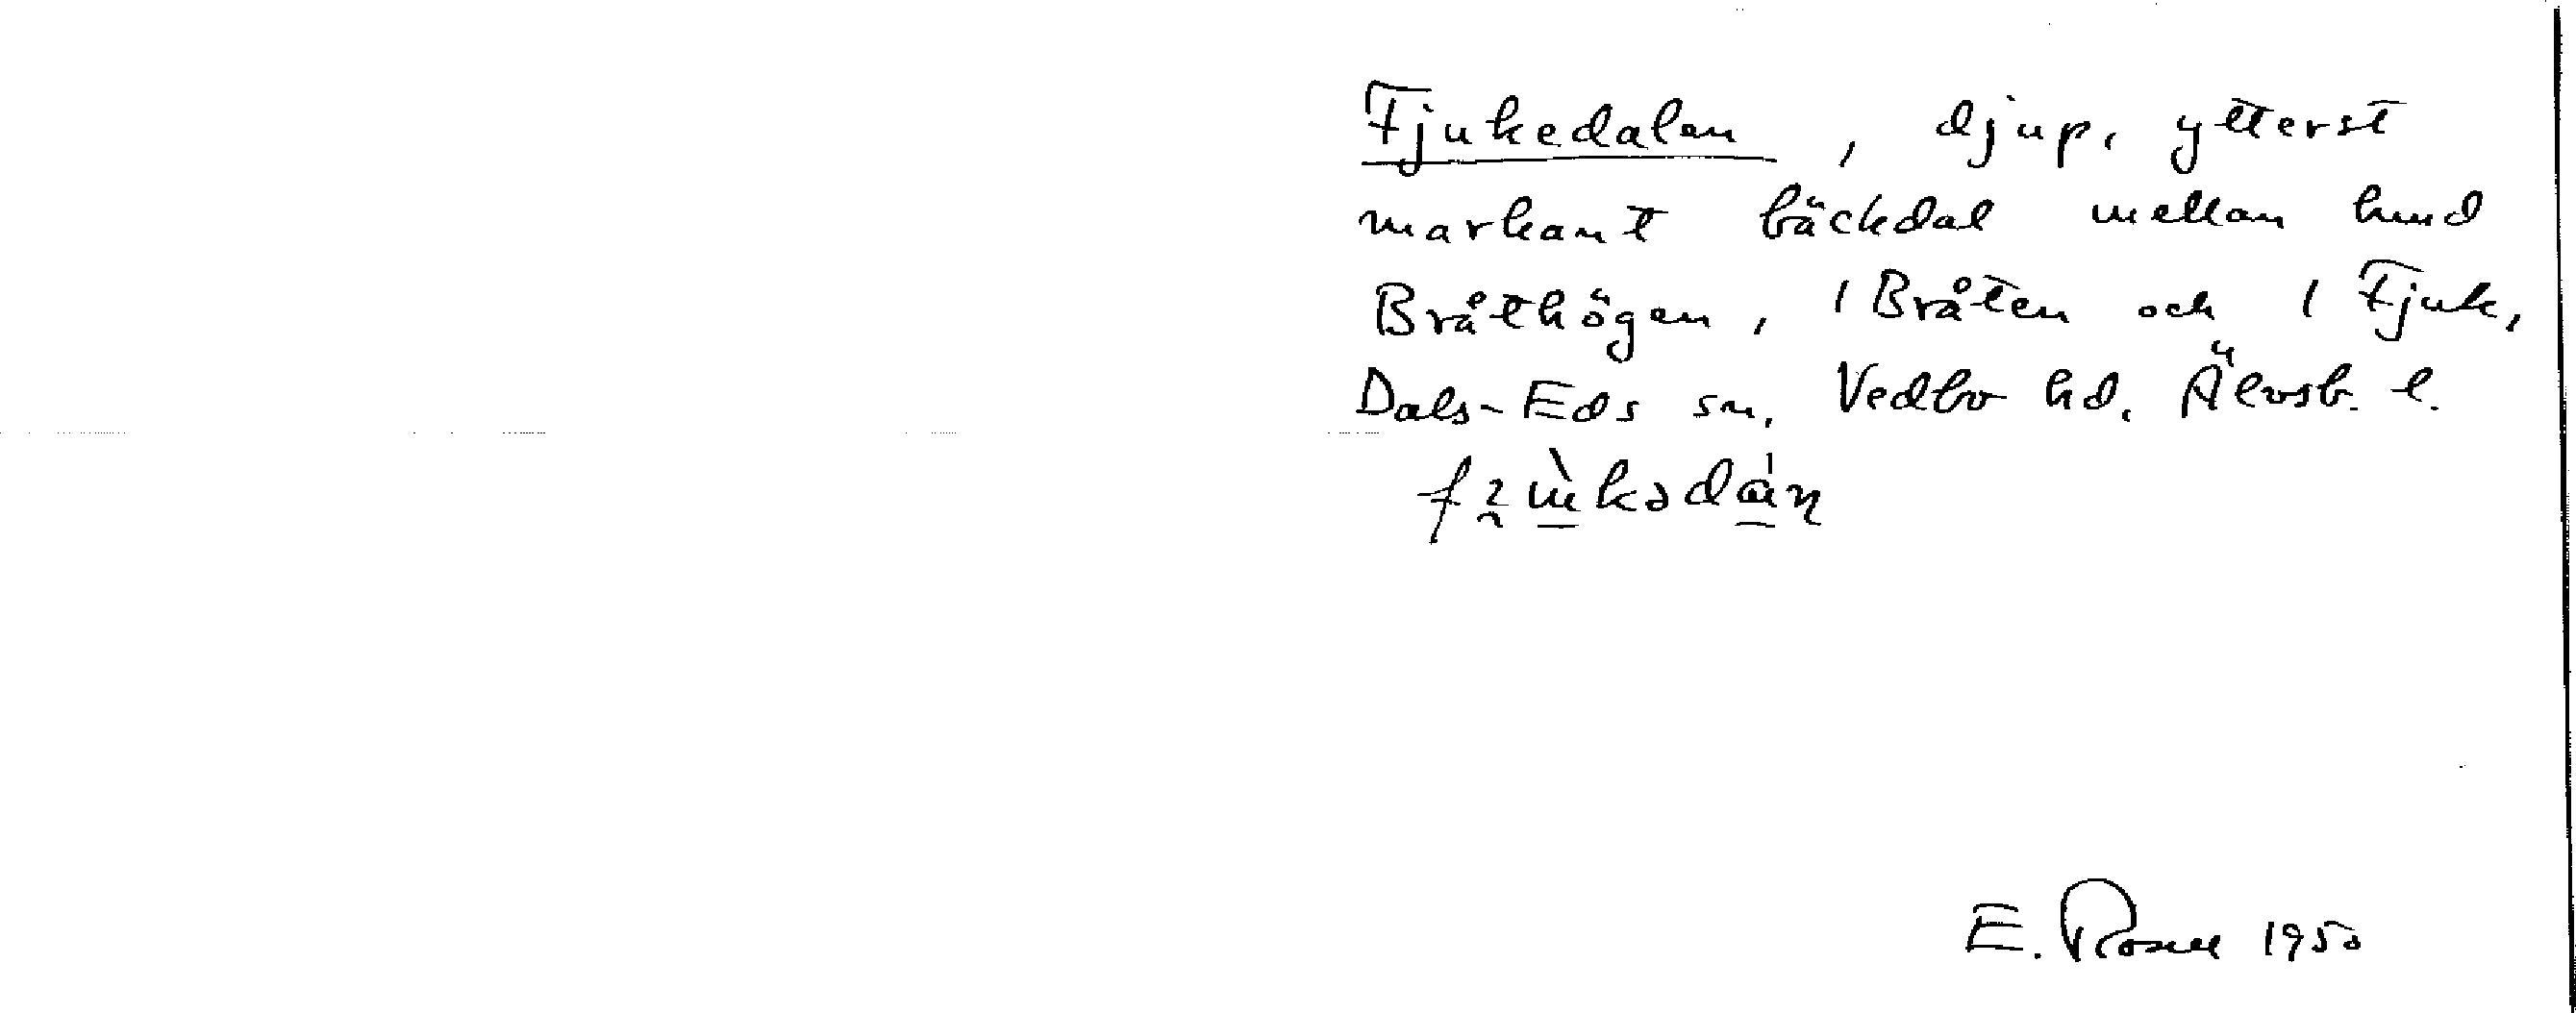 Fjukedalen, djup, ytterst
markant bäckdal mellan hmd
Bråthögen, 1 Bråten och 1 Fjuk,
Dals-Eds sn, Vedbo hd. Älvsb. l.
E. Rosell 1950